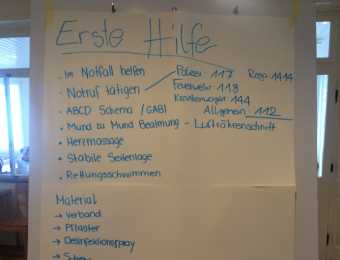 Erste Hilfe
- Im Notfall helfen
- Notruf tätigen
Polizei 117 Rega 1414
Feuerwehr 118
Krankenwagen 144
Allgemein 112
- ABCD Schema / GABI
• Mund zu Mund Beatmung - Luftröhrenschnitt
• Herzmassage
• Stabile Seitenlage
• Rettungsschwimmen
Material
→ Verband
→ Pflaster
→ Desinfektionsspray